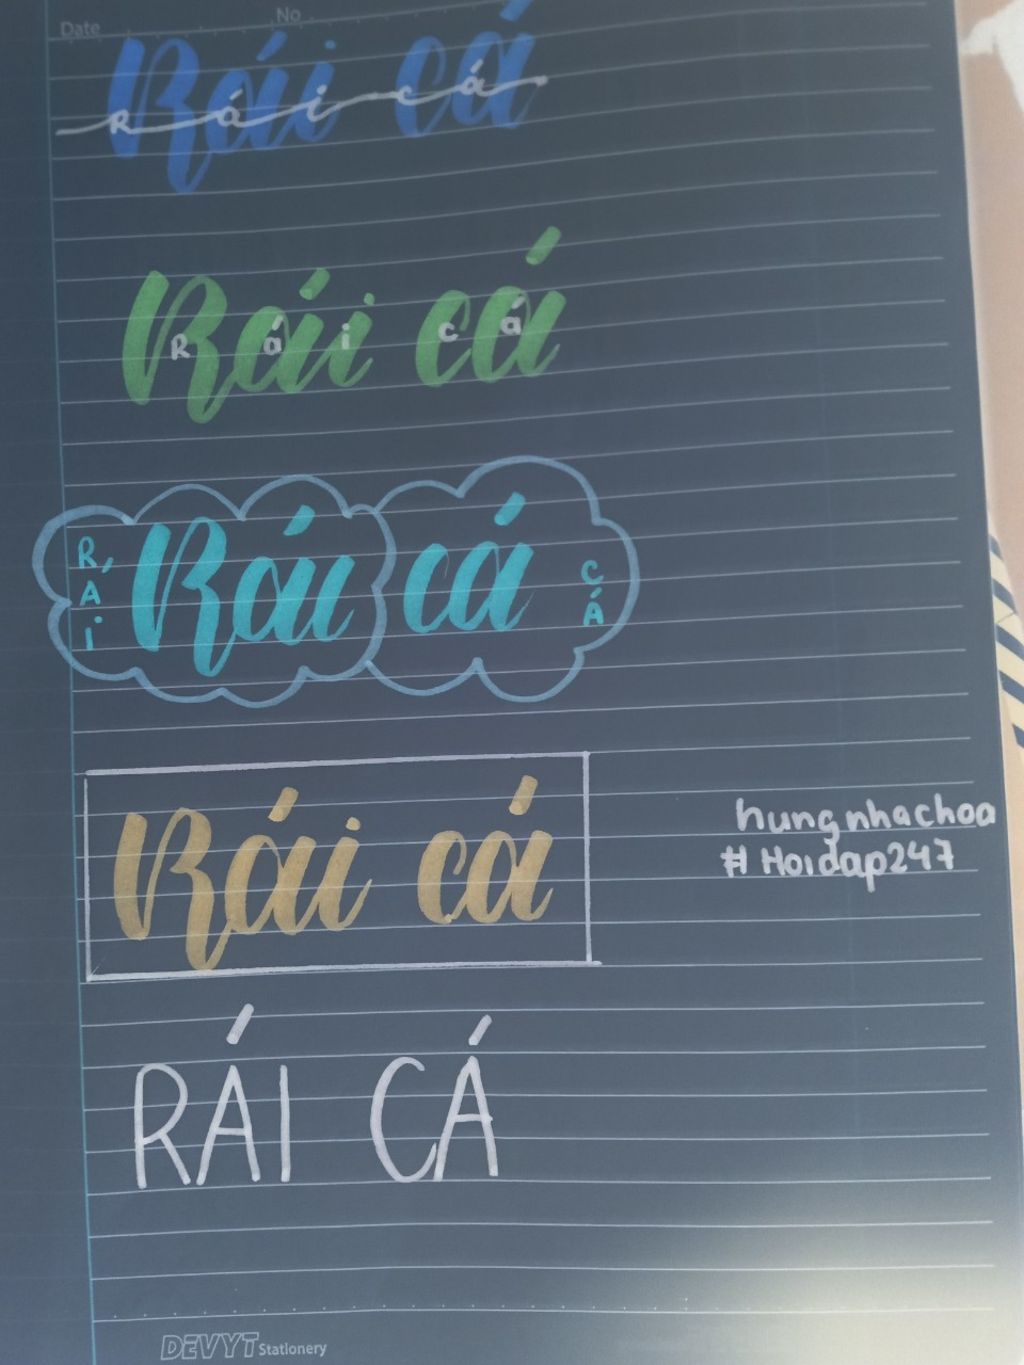 Date No
Rái cá
Rái cá
Rái cá
Rái cá
RÁI Rái cá CÁ
Rái cá
hungnhachoa
#Hoidap247
RÁI CÁ
DEVYT Stationery